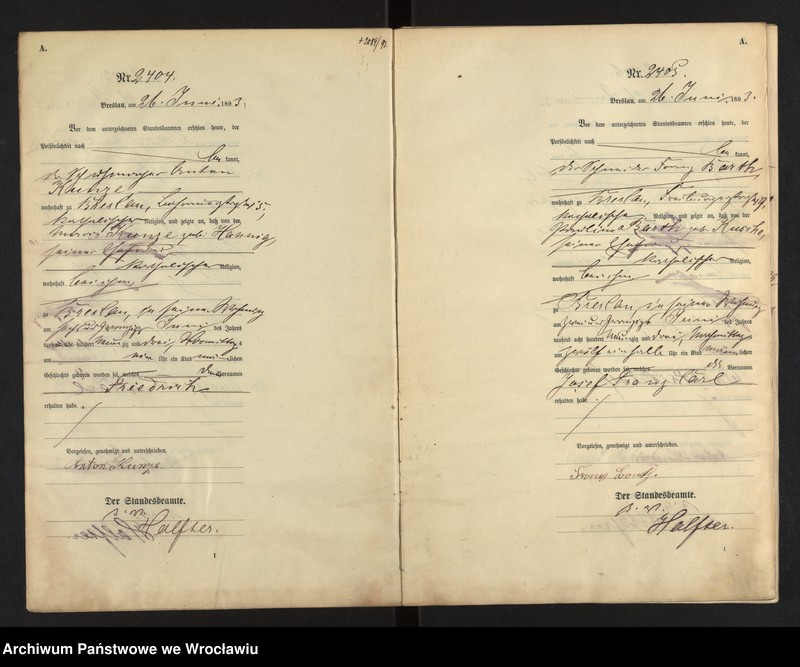 A.
+2089/92
Nr. 2404.
Breslau, am 26. Juni 1893.
Vor dem unterzeichneten Standesbeamten erschien heute, der
Persönlichkeit nach
be kannt,
der Anton
Kunze
wohnhaft zu Breslau,
katholischer Religion, und zeigte an, daß von der
Kunze geb. Hannig,
seiner Ehefrau
katholischer Religion,
wohnhaft bei ihm
zu Breslau, in seiner Wohnung
am Juni des Jahres
tausend acht hundert neunzig und drei, Vormittag
um neun Uhr ein Kind männlichen
Geschlechts geboren worden sei, welches den Vornamen
Friedrich
erhalten habe.
Vorgelesen, genehmigt und unterschrieben.
Anton Kunze
Der Standesbeamte.
Halfter.
1
A.
Nr. 2405.
Breslau, am 26. Juni 1893.
Vor dem unterzeichneten Standesbeamten erschien heute, der
Persönlichkeit nach
be kannt,
der Schneider Franz Barth,
wohnhaft zu Breslau,
katholischer Religion, und zeigte an, daß von der
Barth geb.
seiner Ehefrau
katholischer Religion,
wohnhaft bei ihm
zu Breslau in seiner Wohnung
am zwei und zwanzigsten Juni des Jahres
tausend acht hundert neunzig und drei, Nachmittag
um zwölf ein halb Uhr ein Kind männlichen
Geschlechts geboren worden sei, welches die Vornamen
Josef Franz Carl
erhalten habe.
Vorgelesen, genehmigt und unterschrieben.
Franz Barth.
Der Standesbeamte.
Halfter.
1
Archiwum Państwowe we Wrocławiu